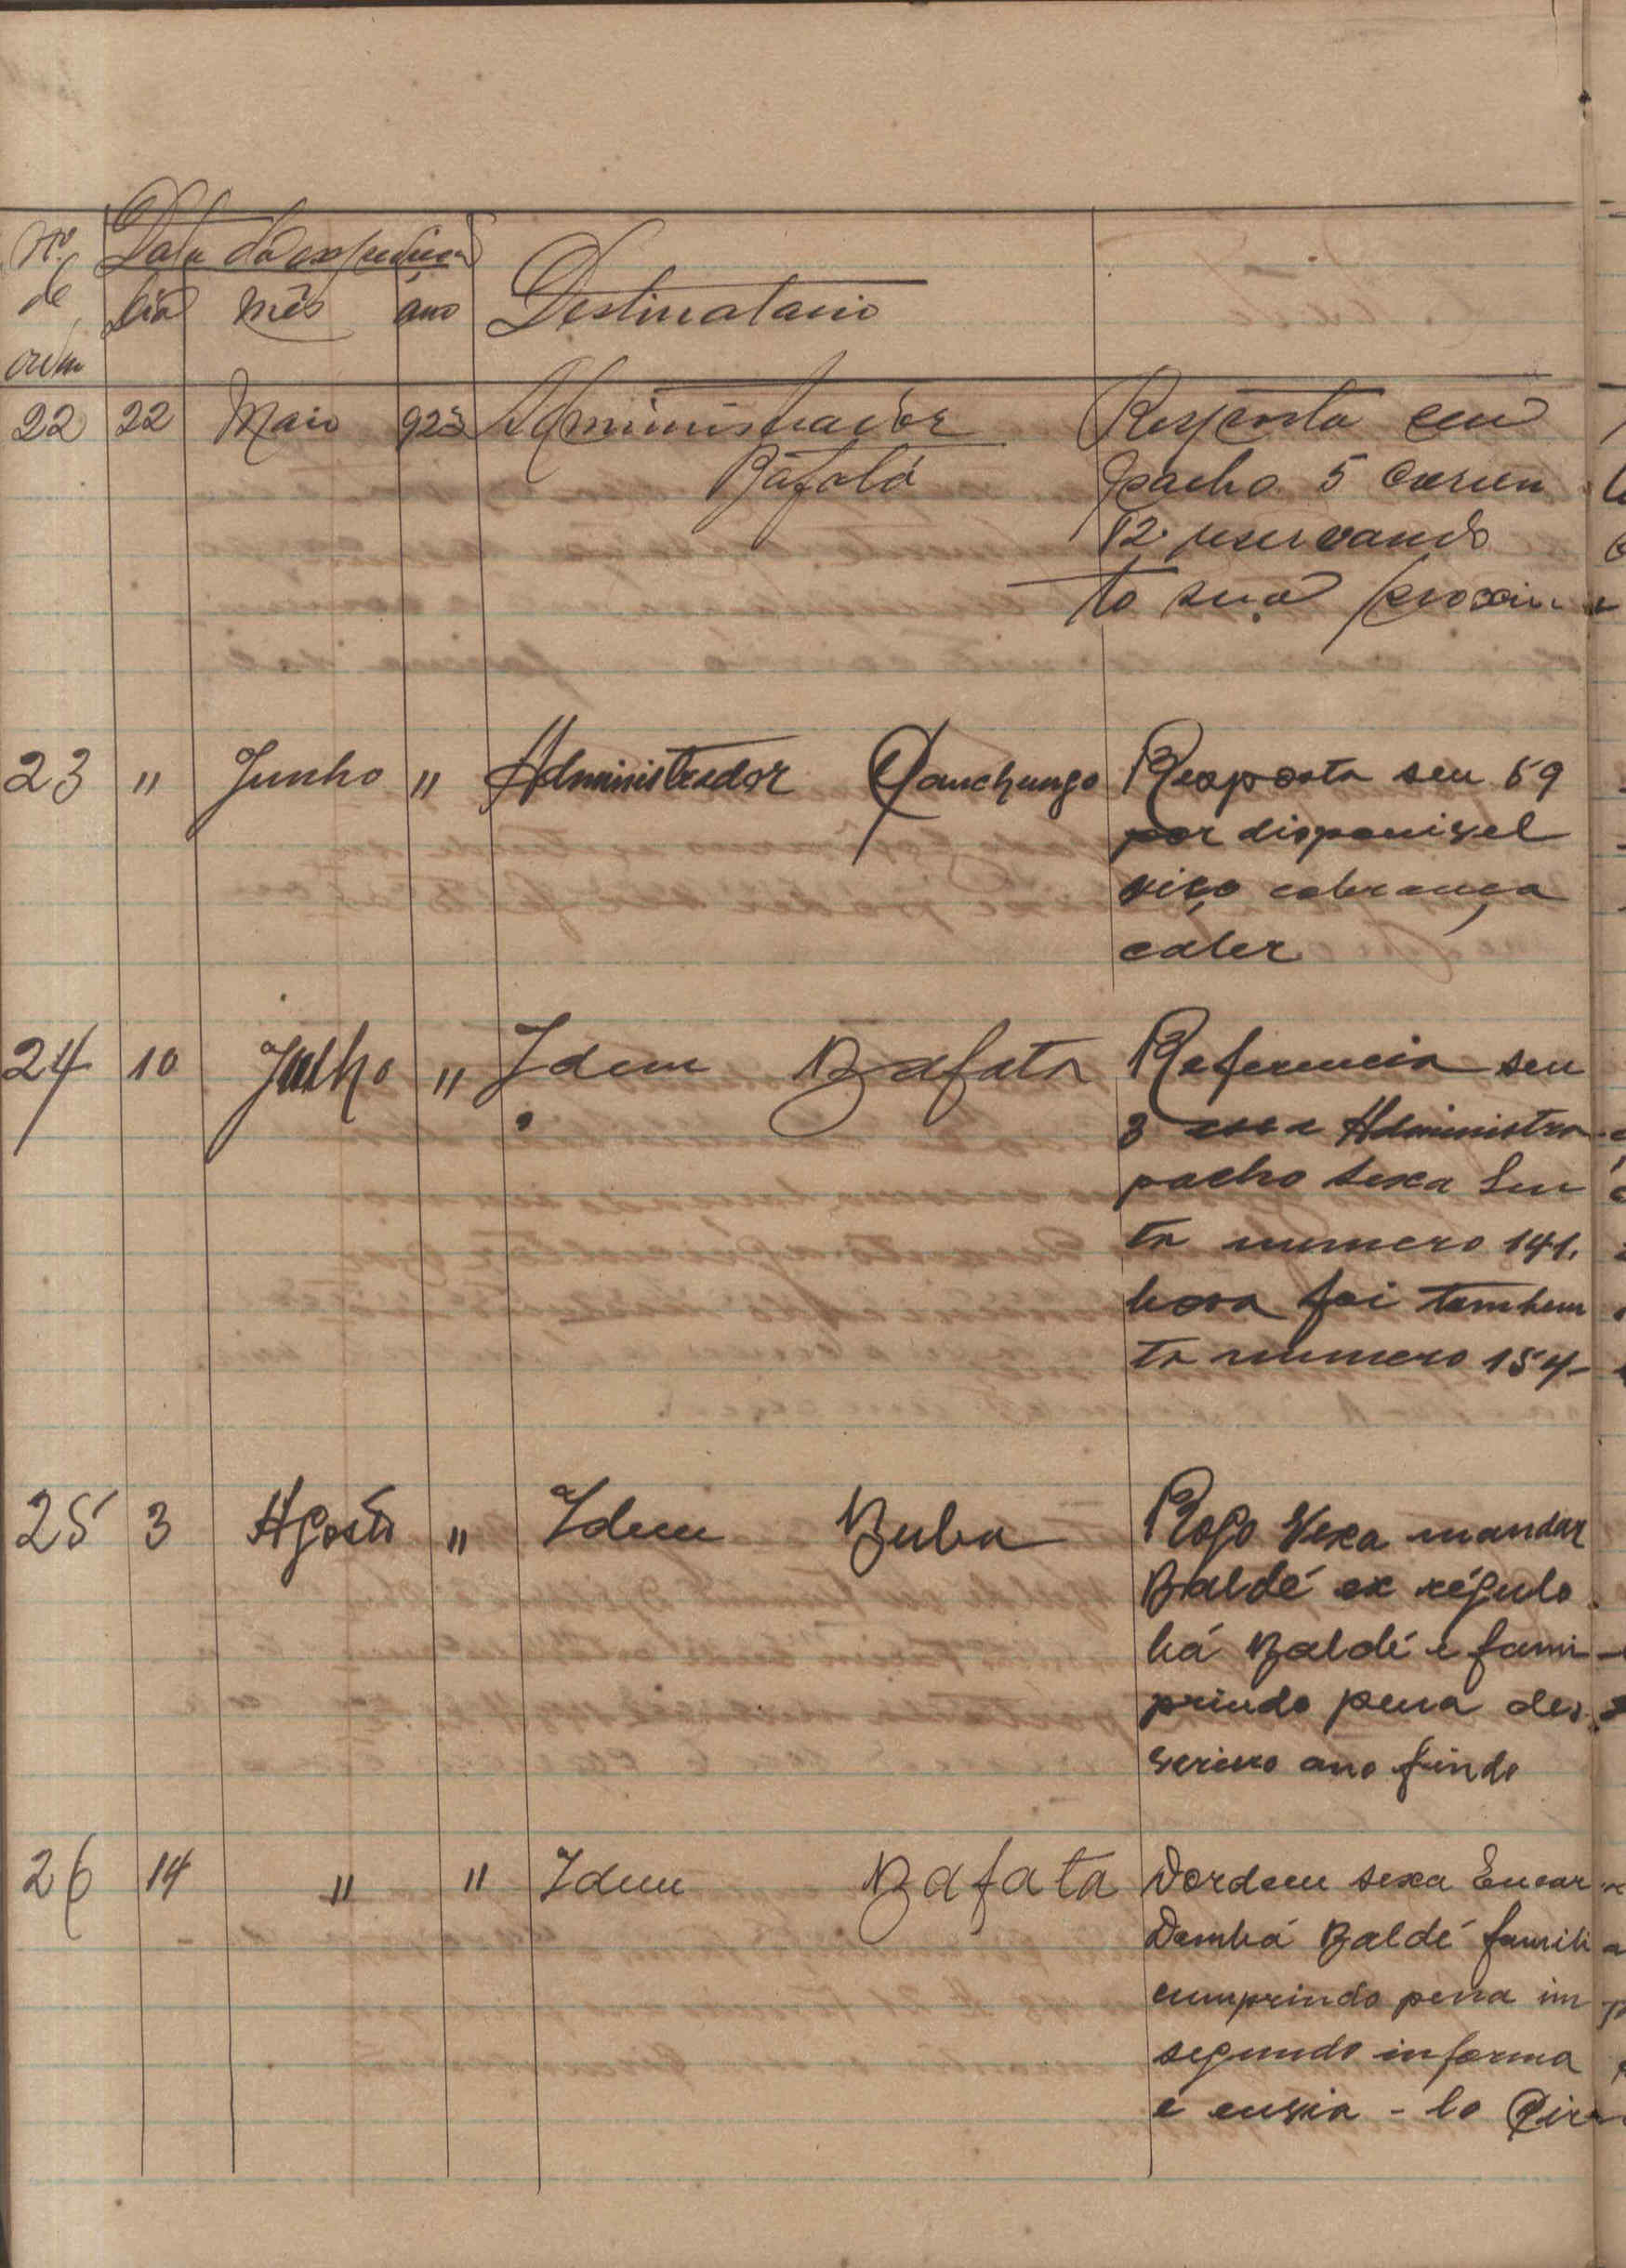 Nº Data da expedição
de Dia Mês áno Destinatario
ordem
22 22 Maio 923 Administrador Resposta seu
Bafatá pacho 5 corren
12. reservando
to sua proxim
23 " Junho " Administrador Canchungo Resposta seu 59
por disponivel
viço cobrança
cater
24 10 Julho " Idem Bafata Referencia seu
3 essa Administra
pacho sexa Lu
ta numero 141.
bora foi tambem
ta numero 154
25 3 Agosto " Idem Buba Rogo Vexa mandar
Baldé ex régulo
bá Baldé e fami
prindo pena des
seriuro ano findo
26 14 " " Idem Bafata Dordem sexa Encar
Dembá Baldé famili
cumprindo pena im
segundo informa
e envia-lo Cir